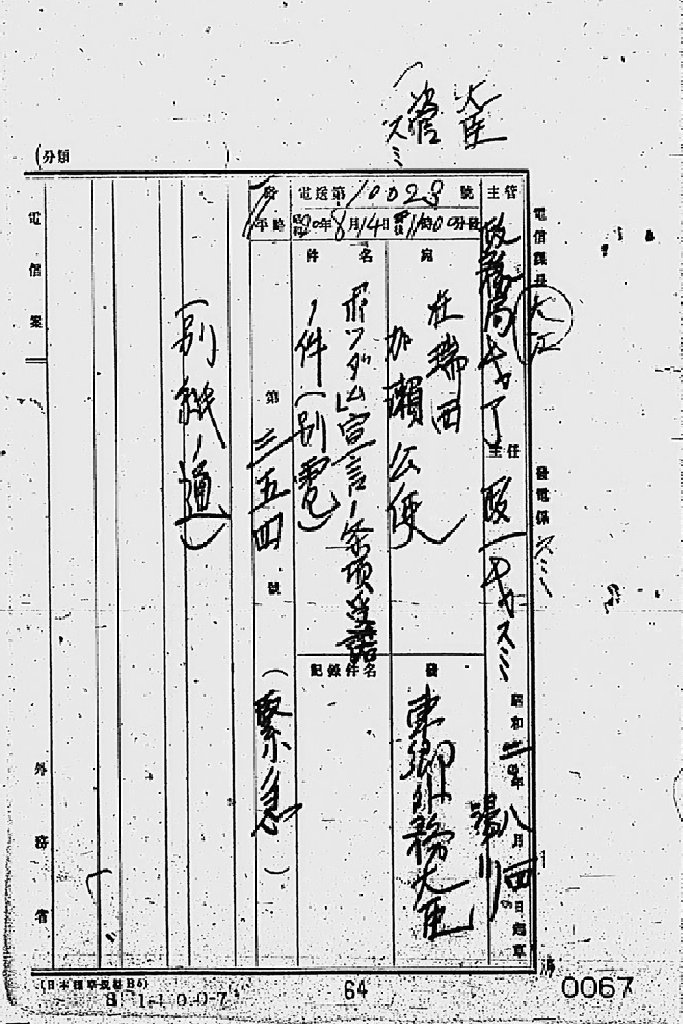 大臣
(次官
スミ
(分類 )
主管
政務局長了
電信課長 大江
主任
政一長スミ
發電係 スミ
昭和二〇年八月一四日起草
湯川
電送第10023號
昭和20年8月14日後11時00分發
平 略
宛
在瑞西
加瀬公使
發
東郷外務大臣
件名
ポツダム宣言ノ条項受諾
ノ件(別電)
記錄件名
第三五四號
(緊急)
(別紙ノ通)
電信案
外務省
(日本標準規格B5)
S 1-1 0 0-7
64
0067